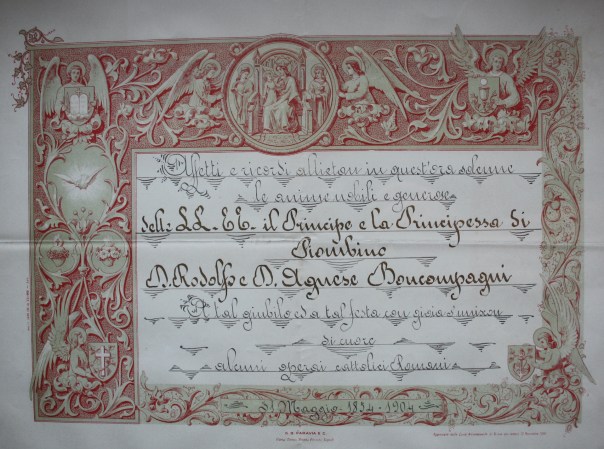 Affetti e ricordi allietan in quest'ora solenne
le anime nobili e generose
delle LL. EE. il Principe e la Principessa di
Piombino
D. Rodolfo e D. Agnese Boncompagni
A tal giubilo ed a tal festa con gioia s'uniscon
di cuore
alcuni operai cattolici Romani
31 Maggio 1854-1904